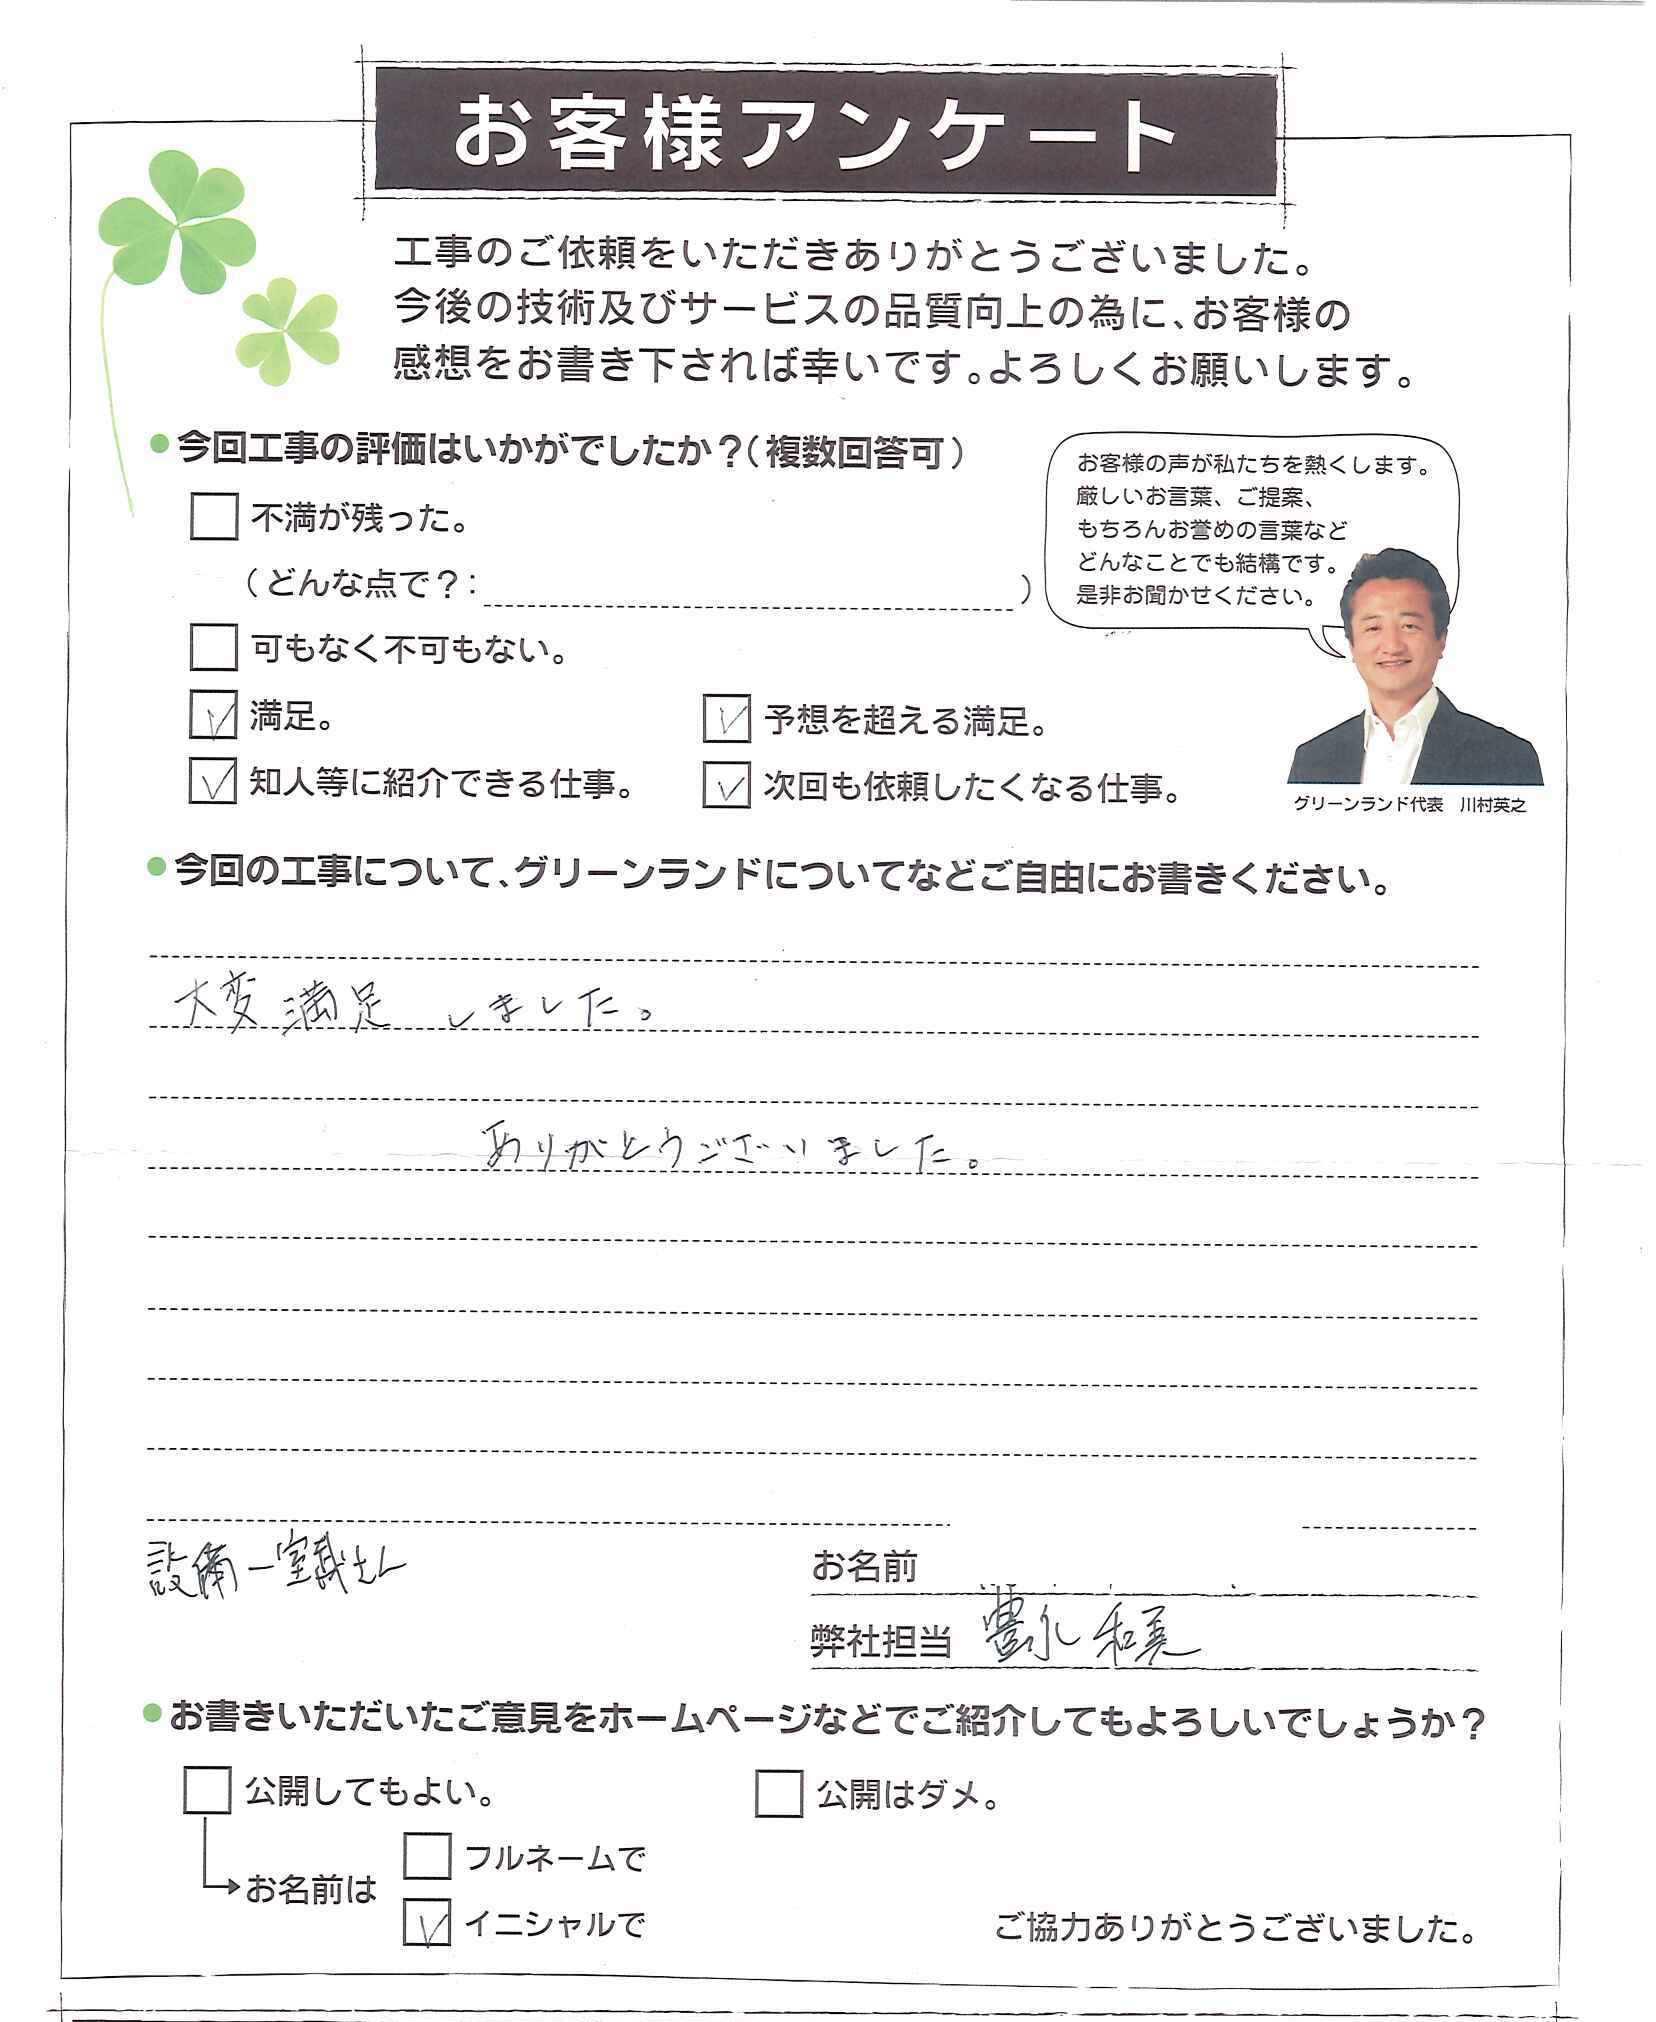 お客様アンケート
工事のご依頼をいただきありがとうございました。
今後の技術及びサービスの品質向上の為に、お客様の
感想をお書き下されば幸いです。よろしくお願いします。
今回工事の評価はいかがでしたか？（複数回答可）
不満が残った。
（どんな点で？：　）
可もなく不可もない。
満足。
予想を超える満足。
知人等に紹介できる仕事。
次回も依頼したくなる仕事。
お客様の声が私たちを熱くします。
厳しいお言葉、ご提案、
もちろんお誉めの言葉など
どんなことでも結構です。
是非お聞かせください。
グリーンランド代表　川村英之
今回の工事について、グリーンランドについてなどご自由にお書きください。
大変満足 しました。
ありがとうございました。
設備 一室 さん
お名前
弊社担当 豊永 和美
お書きいただいたご意見をホームページなどでご紹介してもよろしいでしょうか？
公開してもよい。
公開はダメ。
お名前は
フルネームで
イニシャルで
ご協力ありがとうございました。